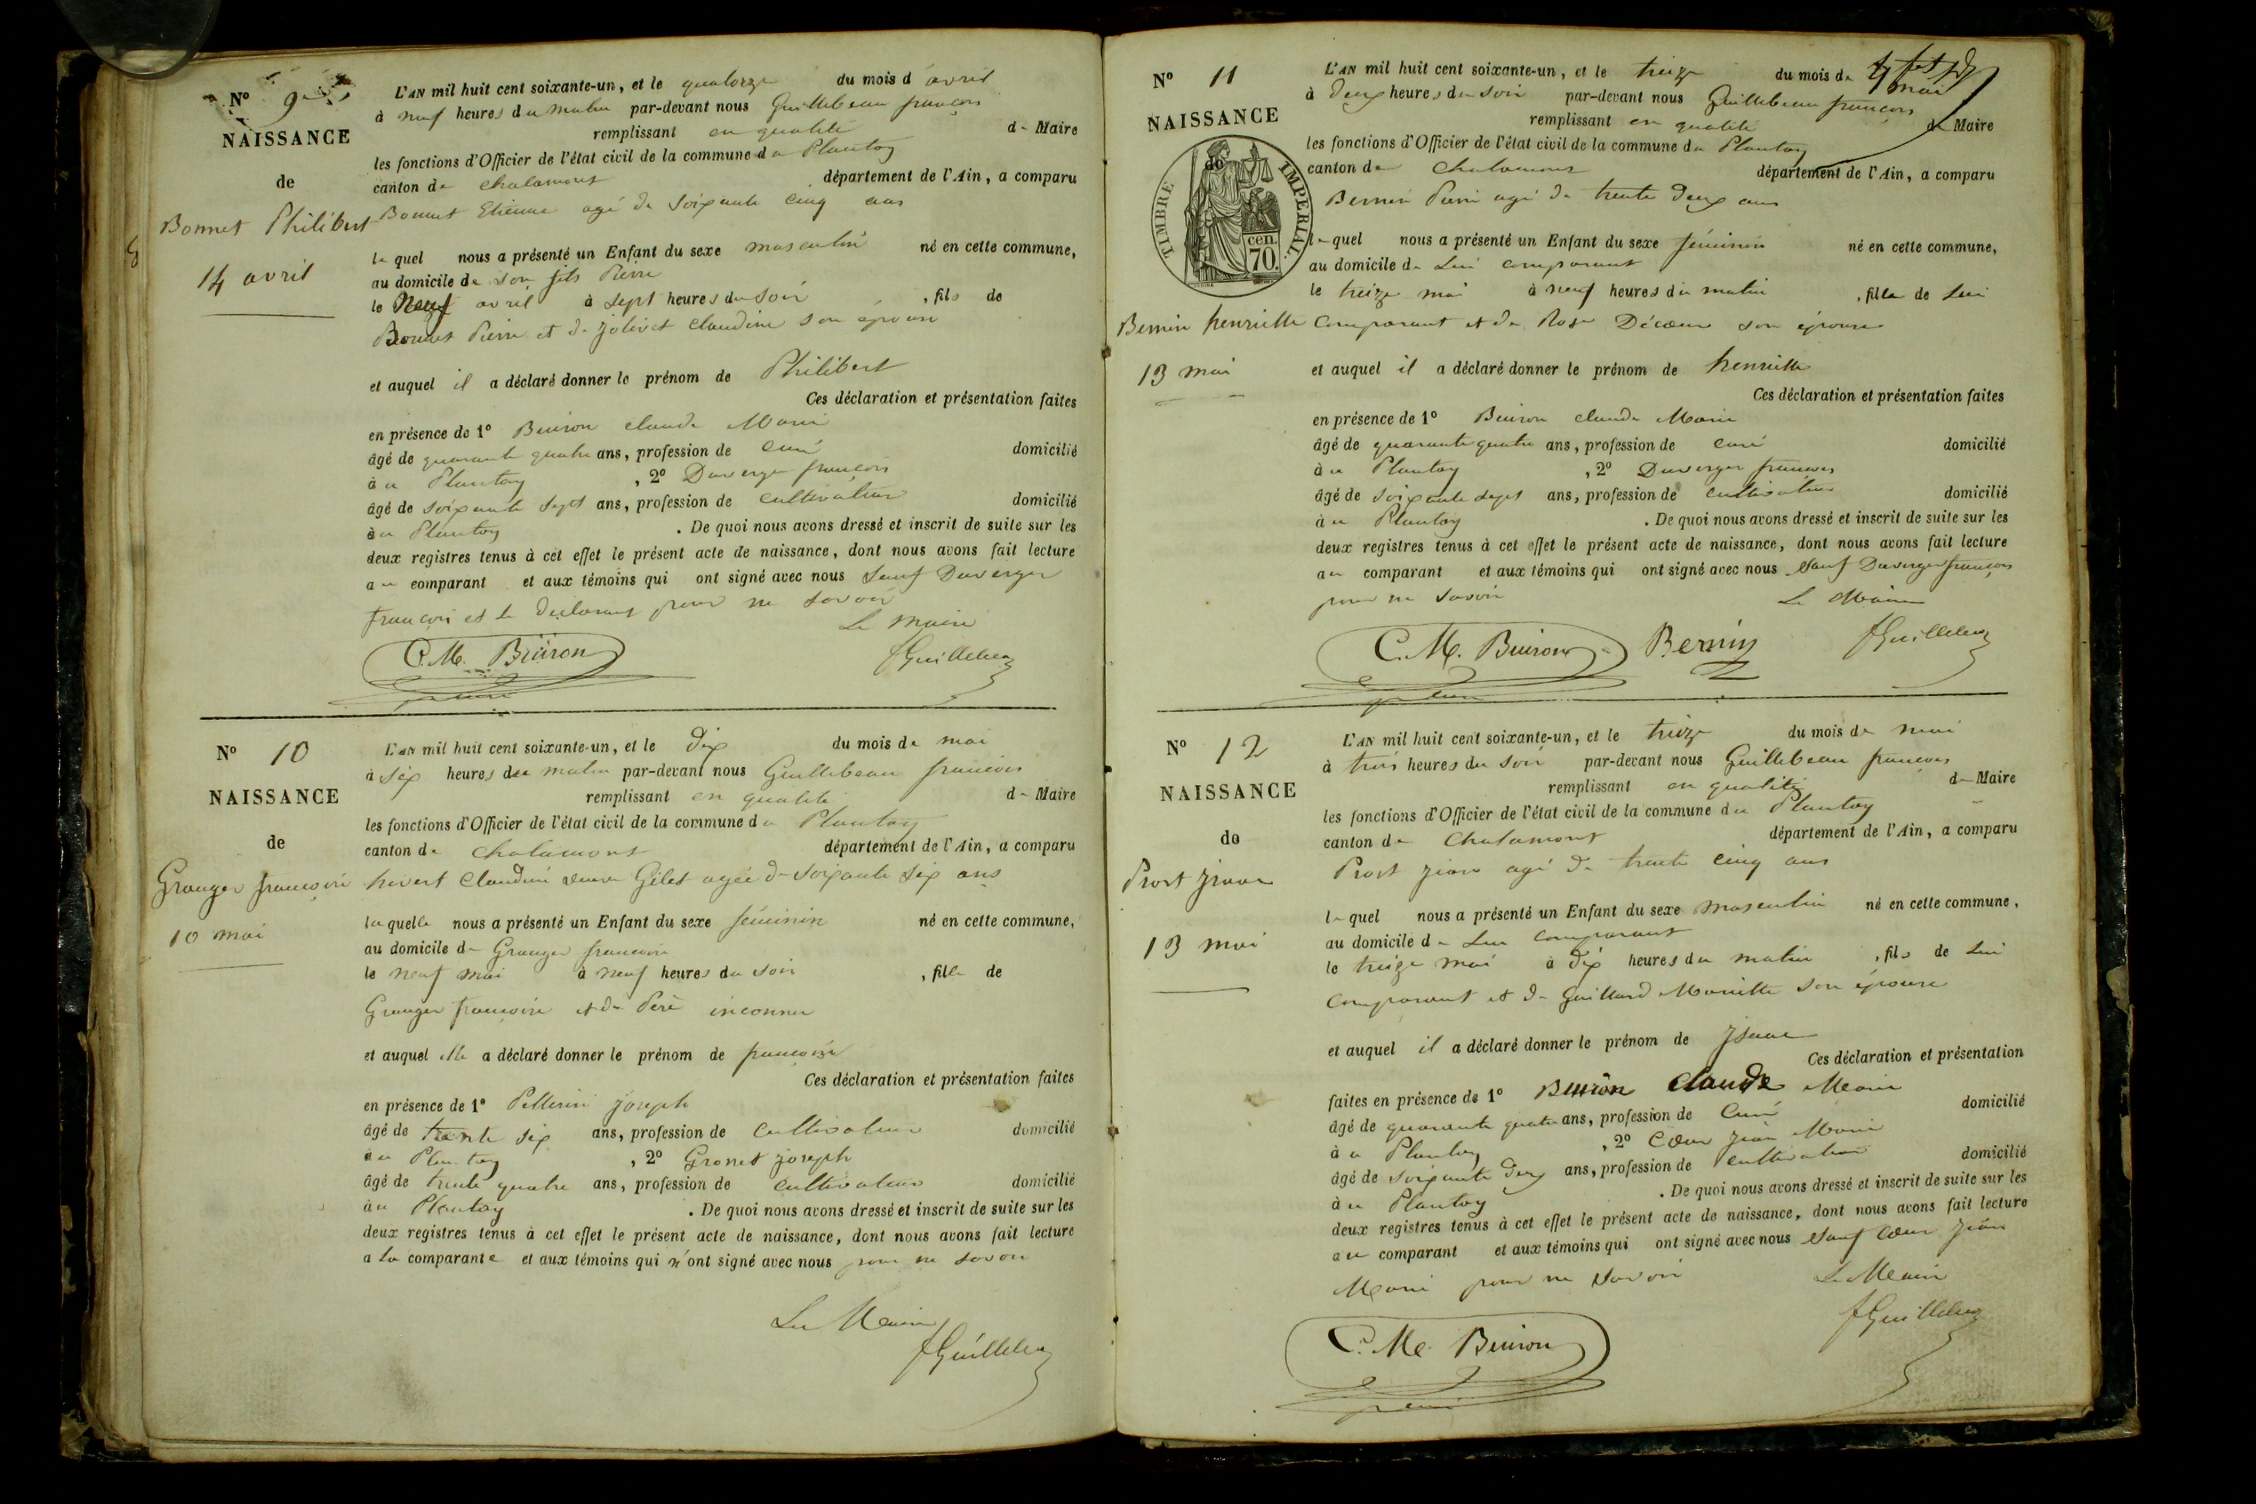 N° 9
NAISSANCE
de
Bonnet Philibert
14 avril
L'AN mil huit cent soixante-un, et le quatorze du mois d'avril
à neuf heures du matin par-devant nous Guillebeau françois
remplissant en qualité de Maire
les fonctions d'Officier de l'état civil de la commune du Plantay
canton de chalamont département de l'Ain, a comparu
Bonnet Etienne agé de soixante cinq ans
le quel nous a présenté un Enfant du sexe masculin né en cette commune,
au domicile de son fils Pierre
le Neuf avril à sept heures du soir , fils de
Bonnet Pierre et de jolivet claudine son épouse
et auquel il a déclaré donner le prénom de Philibert
Ces déclaration et présentation faites
en présence de 1° Buiron claude Marie
âgé de quarante quatre ans, profession de curé domicilié
à u Plantay , 2° Duverger françois
âgé de soixante sept ans, profession de cultivateur domicilié
à u Plantay . De quoi nous avons dressé et inscrit de suite sur les
deux registres tenus à cet effet le présent acte de naissance, dont nous avons fait lecture
au comparant et aux témoins qui ont signé avec nous sauf Duverger
françois et le déclarant pour ne savoir
Le maire
C. M. Buiron
fGuillebeau
N° 10
NAISSANCE
de
Granger françoise
10 mai
L'AN mil huit cent soixante-un, et le dix du mois de mai
à six heures du matin par-devant nous Guillebeau françois
remplissant en qualité de Maire
les fonctions d'Officier de l'état civil de la commune du Plantay
canton de chalamont département de l'Ain, a comparu
hivert Claudine veuve Gilet agée de soixante six ans
la quelle nous a présenté un Enfant du sexe féminin né en cette commune,
au domicile de Granger francoise
le neuf mai à neuf heures du soir , fille de
Granger francoise et de Père inconnu
et auquel elle a déclaré donner le prénom de françoise
Ces déclaration et présentation faites
en présence de 1° Pellerin joseph
âgé de trente six ans, profession de cultivateur domicilié
à u Plantay , 2° Gronet joseph
âgé de trente quatre ans, profession de cultivateur domicilié
à u Plantay . De quoi nous avons dressé et inscrit de suite sur les
deux registres tenus à cet effet le présent acte de naissance, dont nous avons fait lecture
a la comparante et aux témoins qui n'ont signé avec nous pour ne savoir
Le Maire
fGuillebeau
N° 11
NAISSANCE
de
TIMBRE IMPERIAL.
cen.
70.
Bernin henriette
13 mai
L'AN mil huit cent soixante-un, et le treize du mois de mai
à deux heures du soir par-devant nous Guillebeau françois
remplissant en qualité de Maire
les fonctions d'Officier de l'état civil de la commune du Plantay
canton de Chalamont département de l'Ain, a comparu
Bernin Pierre agé de trente deux ans
le quel nous a présenté un Enfant du sexe féminin né en cette commune,
au domicile de Lui comparant
le treize mai à neuf heures du matin , fille de Lui
comparant et de Rose Décoeur son épouse
et auquel il a déclaré donner le prénom de henriette
Ces déclaration et présentation faites
en présence de 1° Buiron claude Marie
âgé de quarante quatre ans, profession de curé domicilié
à u Plantay , 2° Duverger francois
âgé de soixante sept ans, profession de cultivateur domicilié
à u Plantay . De quoi nous avons dressé et inscrit de suite sur les
deux registres tenus à cet effet le présent acte de naissance, dont nous avons fait lecture
au comparant et aux témoins qui ont signé avec nous sauf Duverger françois
pour ne savoir
Le Maire
C. M. Buiron
Bernin
fGuillebeau
N° 12
NAISSANCE
de
Prost
13 mai
L'AN mil huit cent soixante-un, et le treize du mois de mai
à trois heures du soir par-devant nous Guillebeau francois
remplissant en qualité de Maire
les fonctions d'Officier de l'état civil de la commune du Plantay
canton de Chalamont département de l'Ain, a comparu
Prost jean agé de trente cinq ans
le quel nous a présenté un Enfant du sexe masculin né en cette commune,
au domicile de Lui comparant
le treize mai à dix heures du matin , fils de Lui
comparant et de Guillard Mariette son épouse
et auquel il a déclaré donner le prénom de
Ces déclaration et présentation
faites en présence de 1° Buiron Claude Marie
âgé de quarante quatre ans, profession de curé domicilié
à u Plantay , 2° Coeur jean Marie
âgé de soixante deux ans, profession de cultivateur domicilié
à u Plantay . De quoi nous avons dressé et inscrit de suite sur les
deux registres tenus à cet effet le présent acte de naissance, dont nous avons fait lecture
au comparant et aux témoins qui ont signé avec nous sauf Coeur jean
Marie pour ne savoir
Le Maire
C. M. Buiron
fGuillebeau